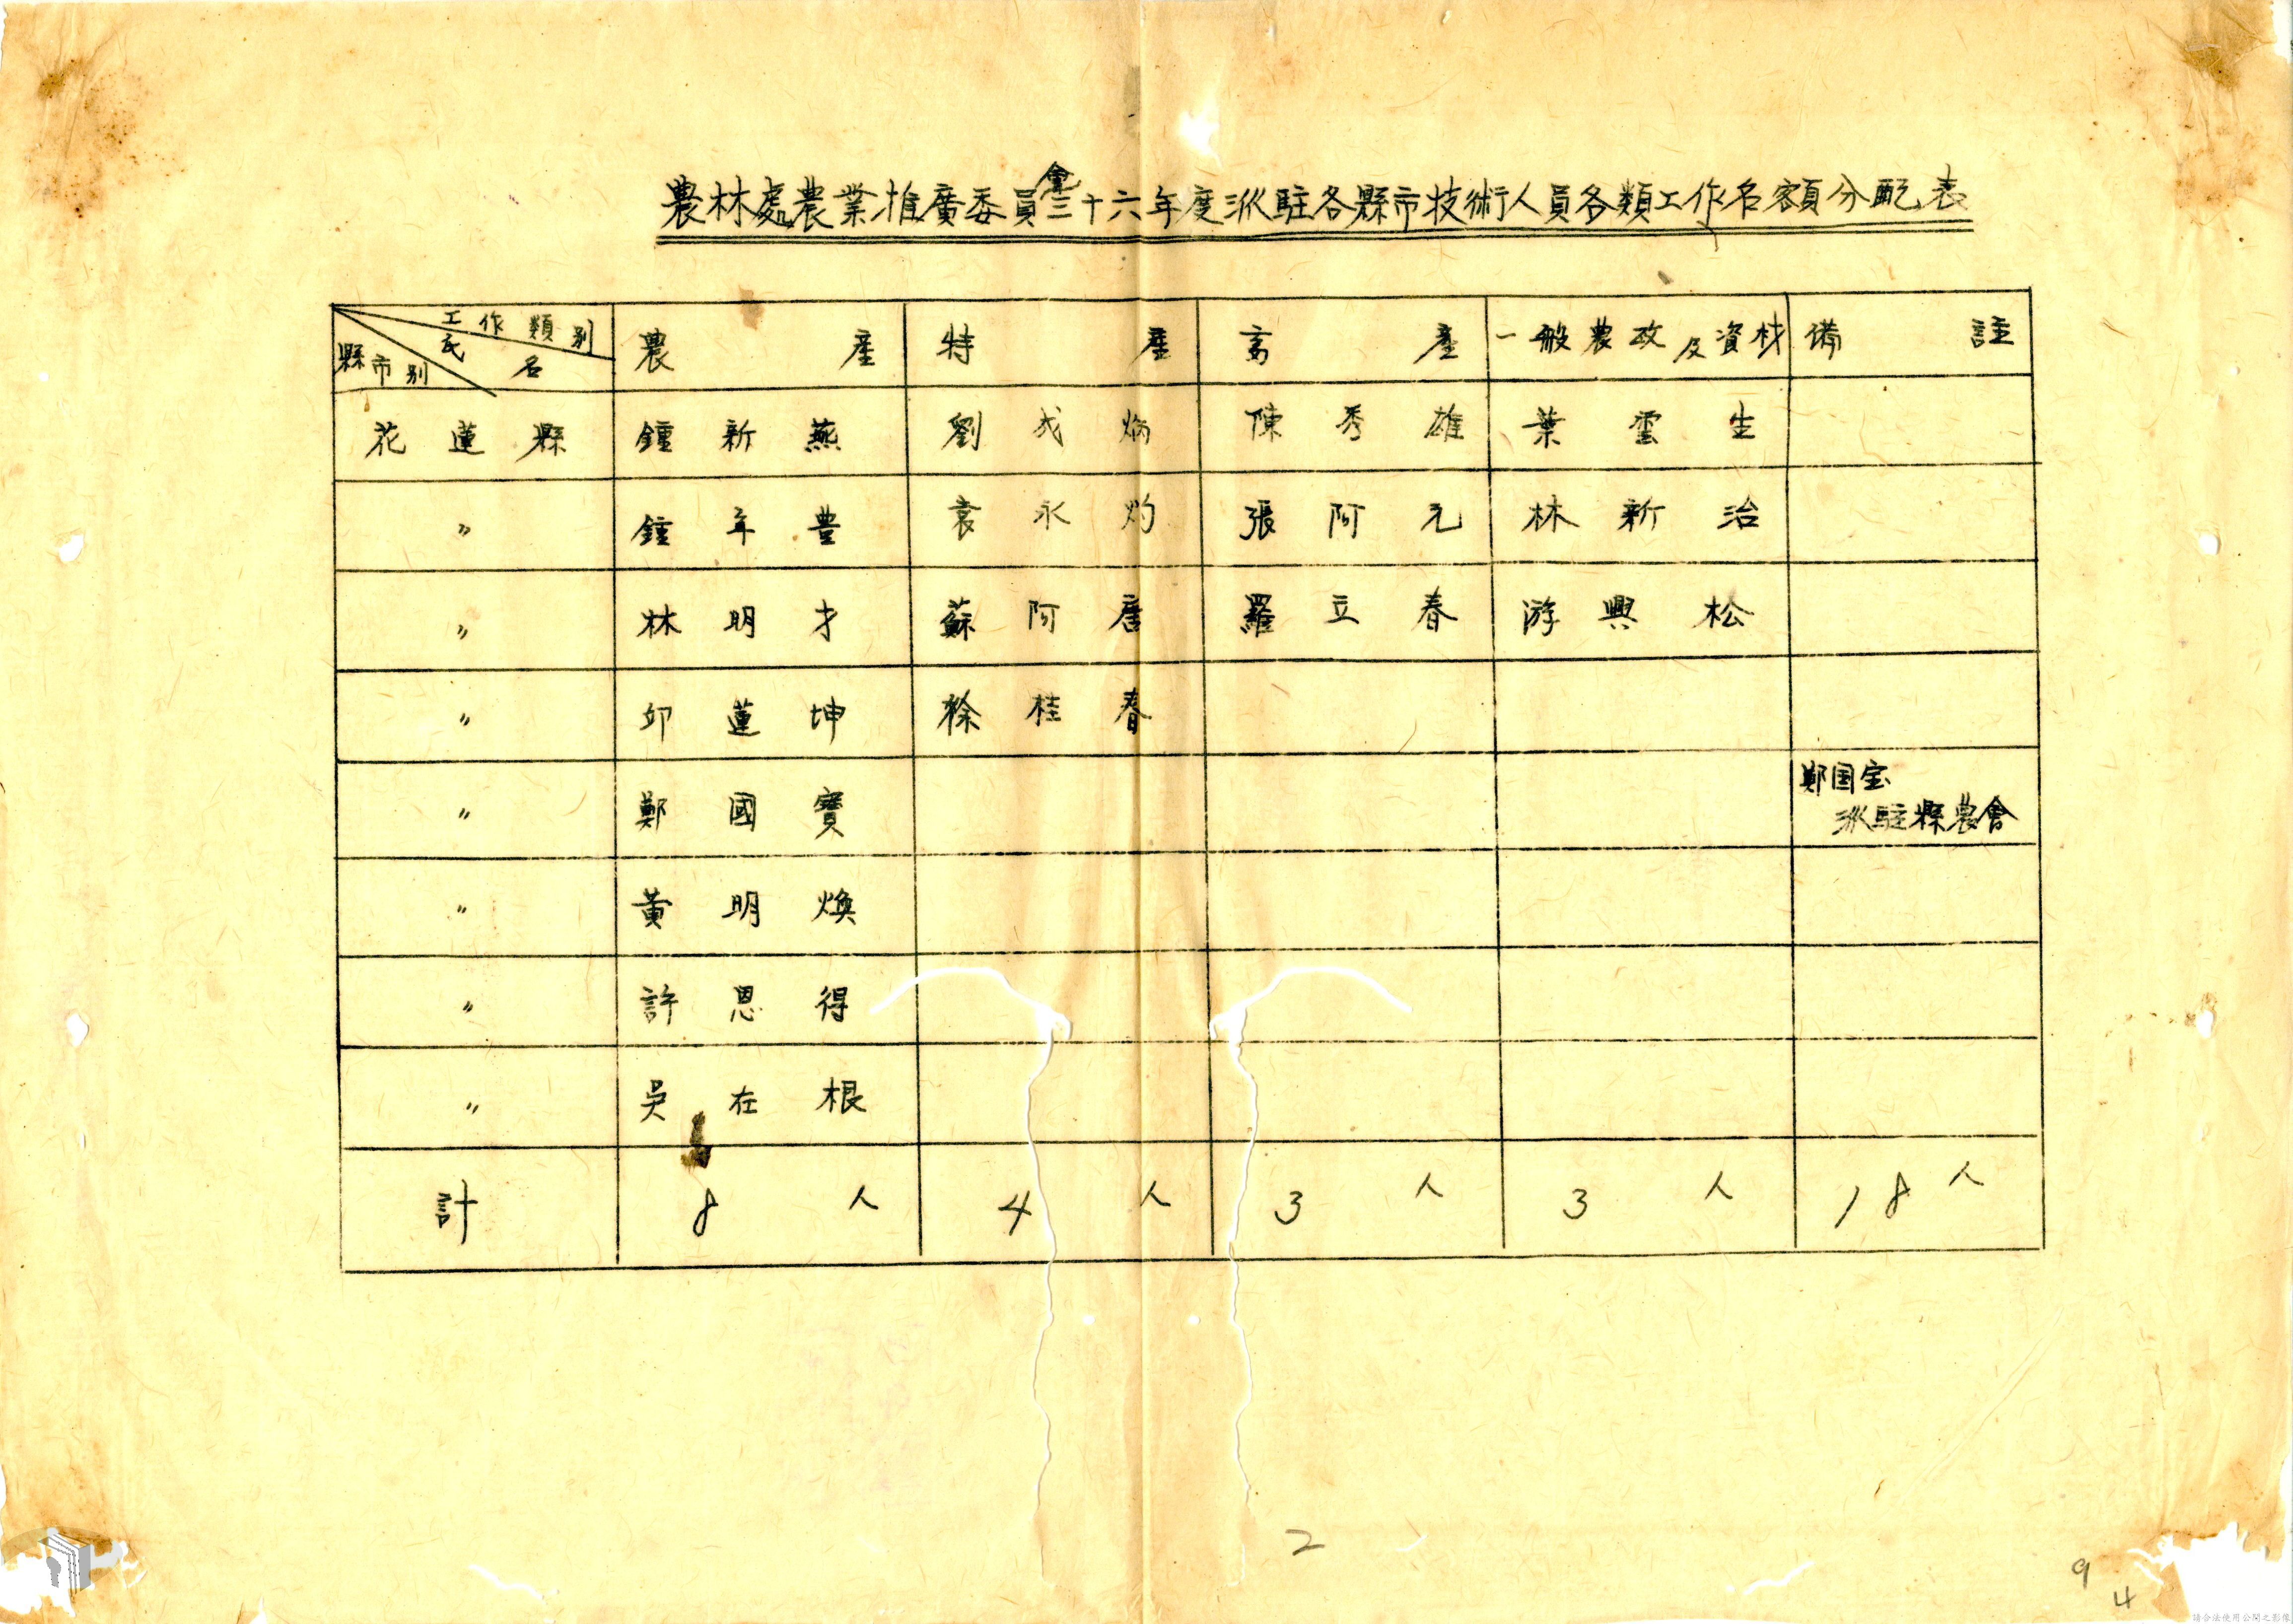 農林處農業推廣委員會三十六年度派駐各縣市技術人員各類工作名額分配表
工作類別 氏名 縣市別 農產 特產 畜產 一般農政及資材 備註
花蓮縣 鍾新燕 劉成炳 陳秀雄 葉雲生
〃 鍾年豊 袁永灼 張阿元 林新治
〃 林明才 蘇阿唐 羅立春 游興松
〃 邱蓮坤 徐桂春
〃 鄭國寶 鄭国宝
派駐縣農會
〃 黃明煥
〃 許恩得
〃 吳在根
計 8人 4人 3人 3人 18人
2
9
4
請合法使用公開之影像